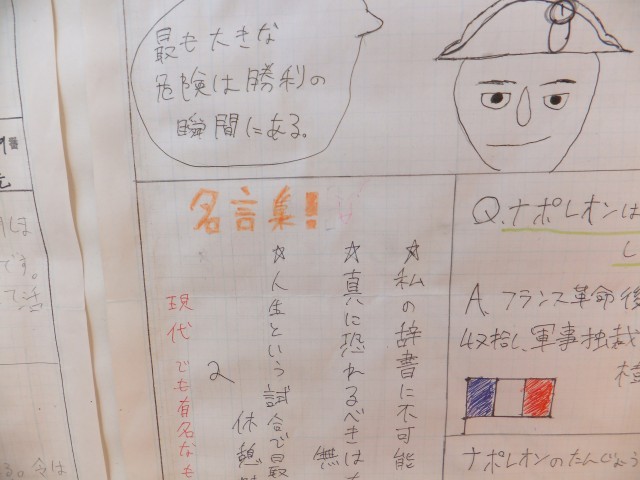 最も大きな
危険は勝利の
瞬間にある。
名言集!
☆私の辞書に不可能
☆真に恐れるべきは
無
☆人生という試合で最
休憩
現代でも有名なも
Q.ナポレオンは
し
A.フランス革命後
収拾し、軍事独裁
ナポレオンのたんじょう
です。
る。令は